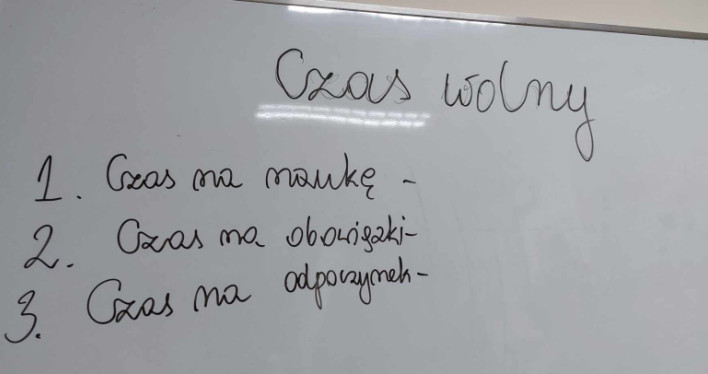 Czas wolny
1. Czas na naukę -
2. Czas na obowiązki-
3. Czas na odpoczynek-